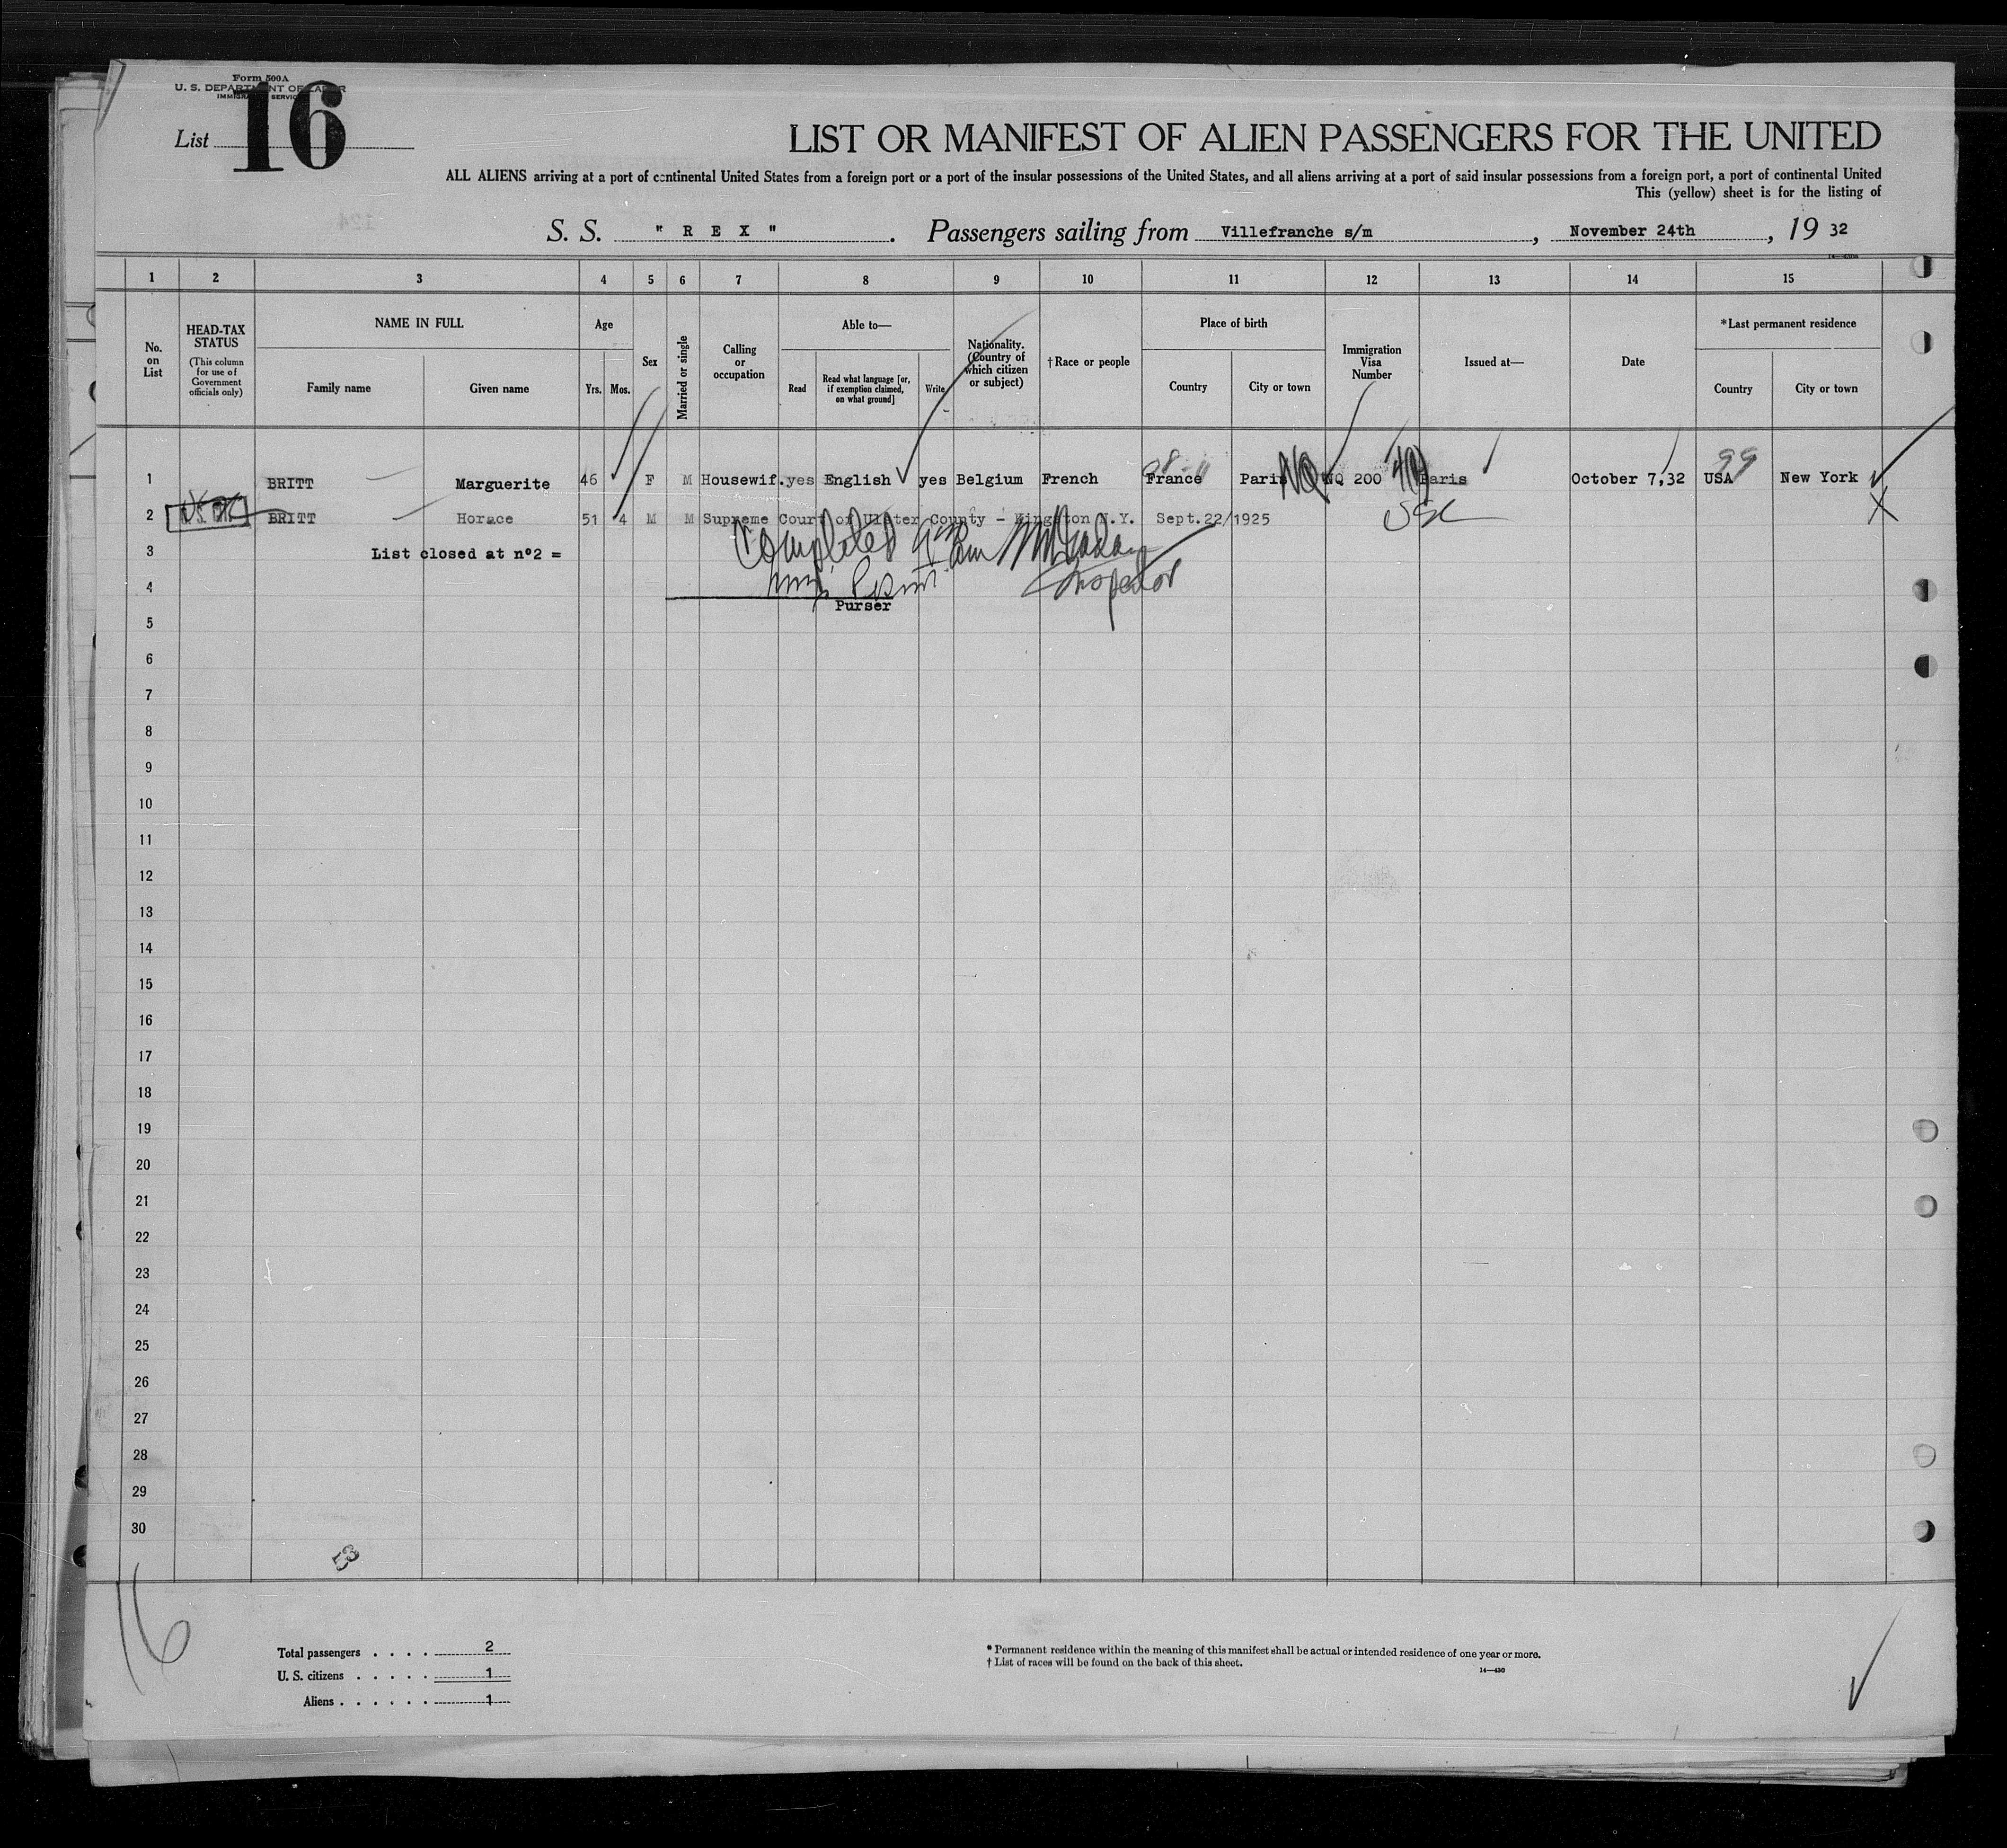 Form 500A
U. S. DEPARTMENT OF LABOR
IMMIGRATION SERVICE
List 16
LIST OR MANIFEST OF ALIEN PASSENGERS FOR THE UNITED
ALL ALIENS arriving at a port of continental United States from a foreign port or a port of the insular possessions of the United States, and all aliens arriving at a port of said insular possessions from a foreign port, a port of continental United
This (yellow) sheet is for the listing of
S. S. " R E X " . Passengers sailing from Villefranche s/m , November 24th , 19 32
1 2 3 4 5 6 7 8 9 10 11 12 13 14 15
No. on List
HEAD-TAX STATUS (This column for use of Government officials only)
NAME IN FULL
Family name Given name
Age
Yrs. Mos.
Sex
Married or single
Calling or occupation
Able to—
Read Read what language [or, if exemption claimed, on what ground] Write
Nationality. (Country of which citizen or subject)
†Race or people
Place of birth
Country City or town
Immigration Visa Number
Issued at—
Date
*Last permanent residence
Country City or town
1 BRITT Marguerite 46 F M Housewif. yes English yes Belgium French France Paris NQ 200 Paris October 7,32 USA New York
NQ 99
2 BRITT Horace 51 4 M M Supreme Court of Ulster County - Kingston N.Y. Sept.22/1925 USC X
3 List closed at nº2 =
Completed
4 Inspector
Purser
5
6
7
8
9
10
11
12
13
14
15
16
17
18
19
20
21
22
23
24
25
26
27
28
29
30
16
Total passengers . . . . 2
U. S. citizens . . . . . 1
Aliens . . . . . . 1
* Permanent residence within the meaning of this manifest shall be actual or intended residence of one year or more.
† List of races will be found on the back of this sheet.
14—430